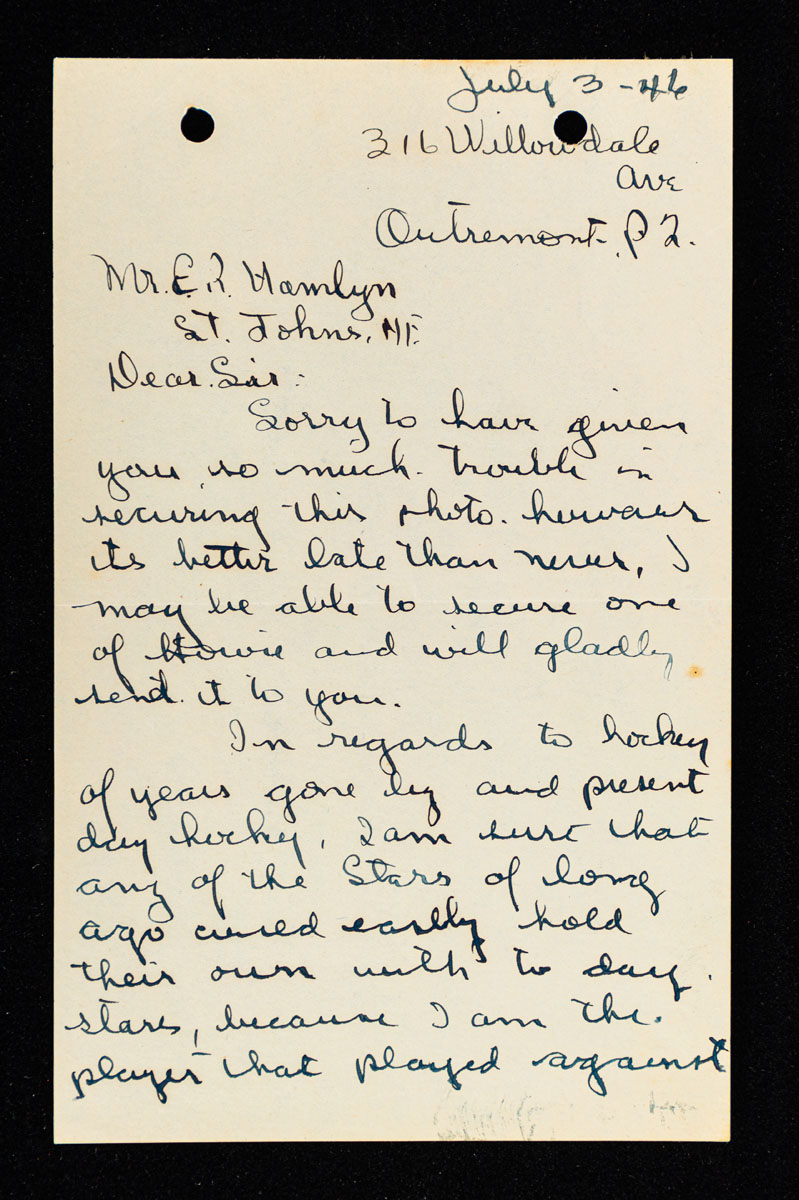 July 3 - 46
316 Willowdale
Ave
Outremont. P 2.
Mr. E. R. Hamlyn
St. Johns, NF.
Dear. Sir:
Sorry to have given
you so much. trouble in
securing this photo. however
its better late than never, I
may be able to secure one
of Howie and will gladly
send. it to you.
In regards to hockey
of years gone by and present
day hockey, I am sure that
any of the Stars of long
ago could easily hold
their own with to day.
stars, because I am the.
player that played against